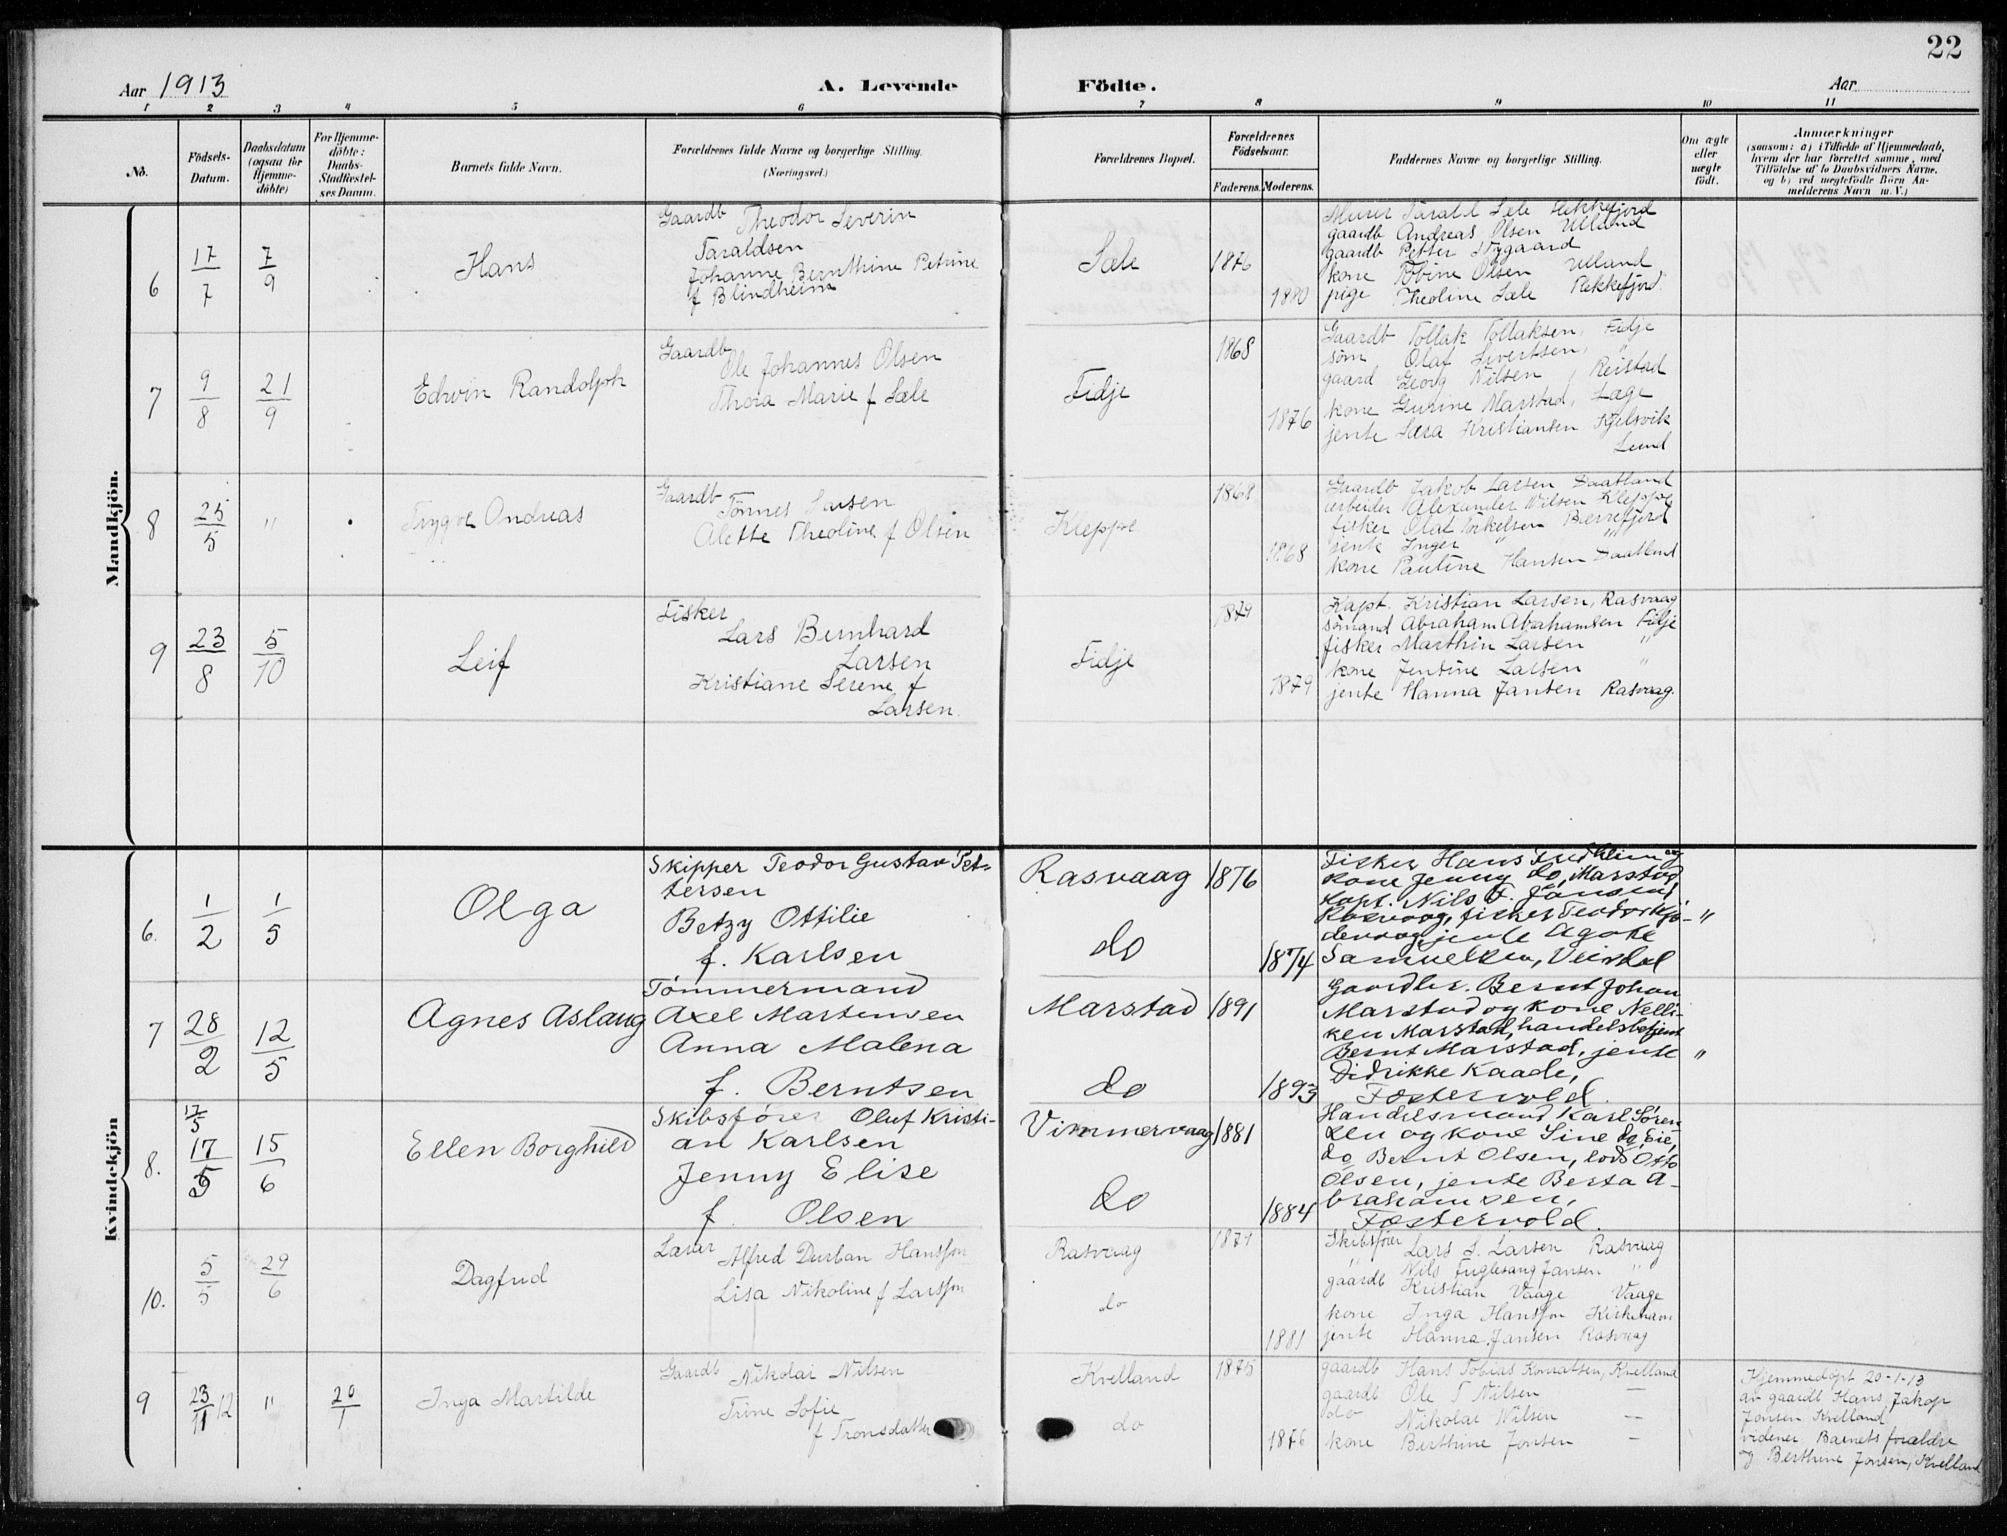 22
Aar 1913
A. Levende Födte.
Aar
1 2 3 4 5 6 7 8 9 10 11
No.
Födsels-Datum.
Daabsdatum (ogsaa for Hjemmedöbte)
For Hjemmedöbte: Daabs-Stadfæstelses Datum.
Barnets fulde Navn.
Forældrenes fulde Navne og borgerlige Stilling. (Næringsvei.)
Forældrenes Bopæl.
Forældrenes Födselsaar.
Faderens. Moderens.
Faddernes Navne og borgerlige Stilling.
Om ægte eller uægte födt.
Anmærkninger
(saasom: a) i Tilfælde af Hjemmedaab,
hvem der har forrettet samme, med
Tilföielse af to Daabsvidners Navne,
og b) ved uægtefödte Börn Anmelderens Navn m. V.)
Mandkjön.
6 17/7 7/9 Hans
Gaardb Theodor Severin
Taraldsen
Johanne Bernthine Petrine
f Blindheim
Sæle 1876 1880
Murer Tarald Sæle Rekkefjord
gaardb Andreas Olsen Ulland
gaardb Petter Nygaard
kone Tobine Olsen Ulland
pige Theoline Sæle Rekkefjord
7 9/8 21/9 Edwin Randolph
Gaardb
Ole Johannes Olsen
Thora Marie f Sæle
Fidje 1868 1876
Gaardb Tollak Tollaksen, Fidje
søm Olaf Sivertsen, "
gaard Georg Nilsen, Reistad
kone Gurine Marstad, Lægе
jente Sara Kristiansen Kjelsvik
Lund
8 25/5 " Trygve Andreas
Gaardb Tønnes Larsen
Alette Theoline f Olsen
Kleppe 1868 1868
Gaardb Jakob Larsen Daatland
arbeider Alexander Nilsen Kleppe
fisker Olaf Torkelsen Berrefjord
jente Inger " "
kone Pauline Hansen Daatland
9 23/8 5/10 Leif
Fisker
Lars Bernhard
Larsen
Kristiane Serene f
Larsen.
Fidje 1879 1879
Kapt. Kristian Larsen, Rasvaag
sømand Abraham Abrahamsen Fidje
fisker Marthin Larsen "
kone Jentine Larsen "
jente Hanna Jansen Rasvaag.
Kvindekjön
6. 1/2 1/5 Olga
Skipper Teodor Gustav Pet-
tersen
Betzy Ottilie
f. Karlsen
Rasvaag 1876
do 1874
Fisker Hans Fredheim og
kone Jenny do, Marstad
kapt. Nils F. Jansen,
Rasvaag, fisker Teodor Kjø- "
devaag, jente Agate
Samuelsen, Veisdal
7 28/2 12/5 Agnes Aslaug
Tømmermand
Axel Martinsen
Anna Malena
f. Berntsen
Marstad 1891
do 1893
Gaardbr. Bernt Johan
Marstad og kone Nelli-
ken Marstad, handelsbetjent
Bernt Marstad, jente "
Didrikke Kaade,
Fostervold.
8. 17/5 17/5 15/6 Ellen Borghild
Skibsfører Oluf Kristi-
an Karlsen
Jenny Elise
f. Olsen
Vimmervaag 1881
do 1884
Handelsmand Karl Søren
sen og kone Sine do, Eie,
do Bernt Olsen, lods Otto
Olsen, jente Berta A-
brahamsen,
Fostervold.
10. 5/5 29/6 Dagfrid
Lærer Alfred Durban Hansson
Lisa Nikoline f Larsson
Rasvaag
do 1881
Skibsfører Lars S. Larsen Rasvaag
" Nils Fuglesang Jansen "
gaardb Kristian Vaage Vaage
kone Inga Hansson Kirkehavn
jente Hanna Jansen Rasvaag
9 23/11 12 " 20/1 Inga Martilde
Gaardb Nikolai Nilsen
Trine Sofie
f Tronsdatter
Kvelland 1875
do 1876
gaardb Hans Tobias Konratsen, Kvelland
gaardb Ole T Nilsen —
do Nikolai Nilsen —
kone Berthine Jonsen —
Hjemmedøpt 20-1-13
av gaardb Hans Jakop
Jonsen Kvelland
vidner Barnets forældre
og Berthine Jonsen, Kvelland